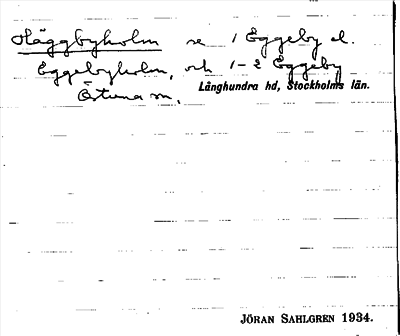 Häggbyholm se 1 Eggeby el.
Eggebyholm, och 1-2 Eggeby
Östuna sn.
Långhundra hd, Stockholms län.
JÖRAN SAHLGREN 1934.